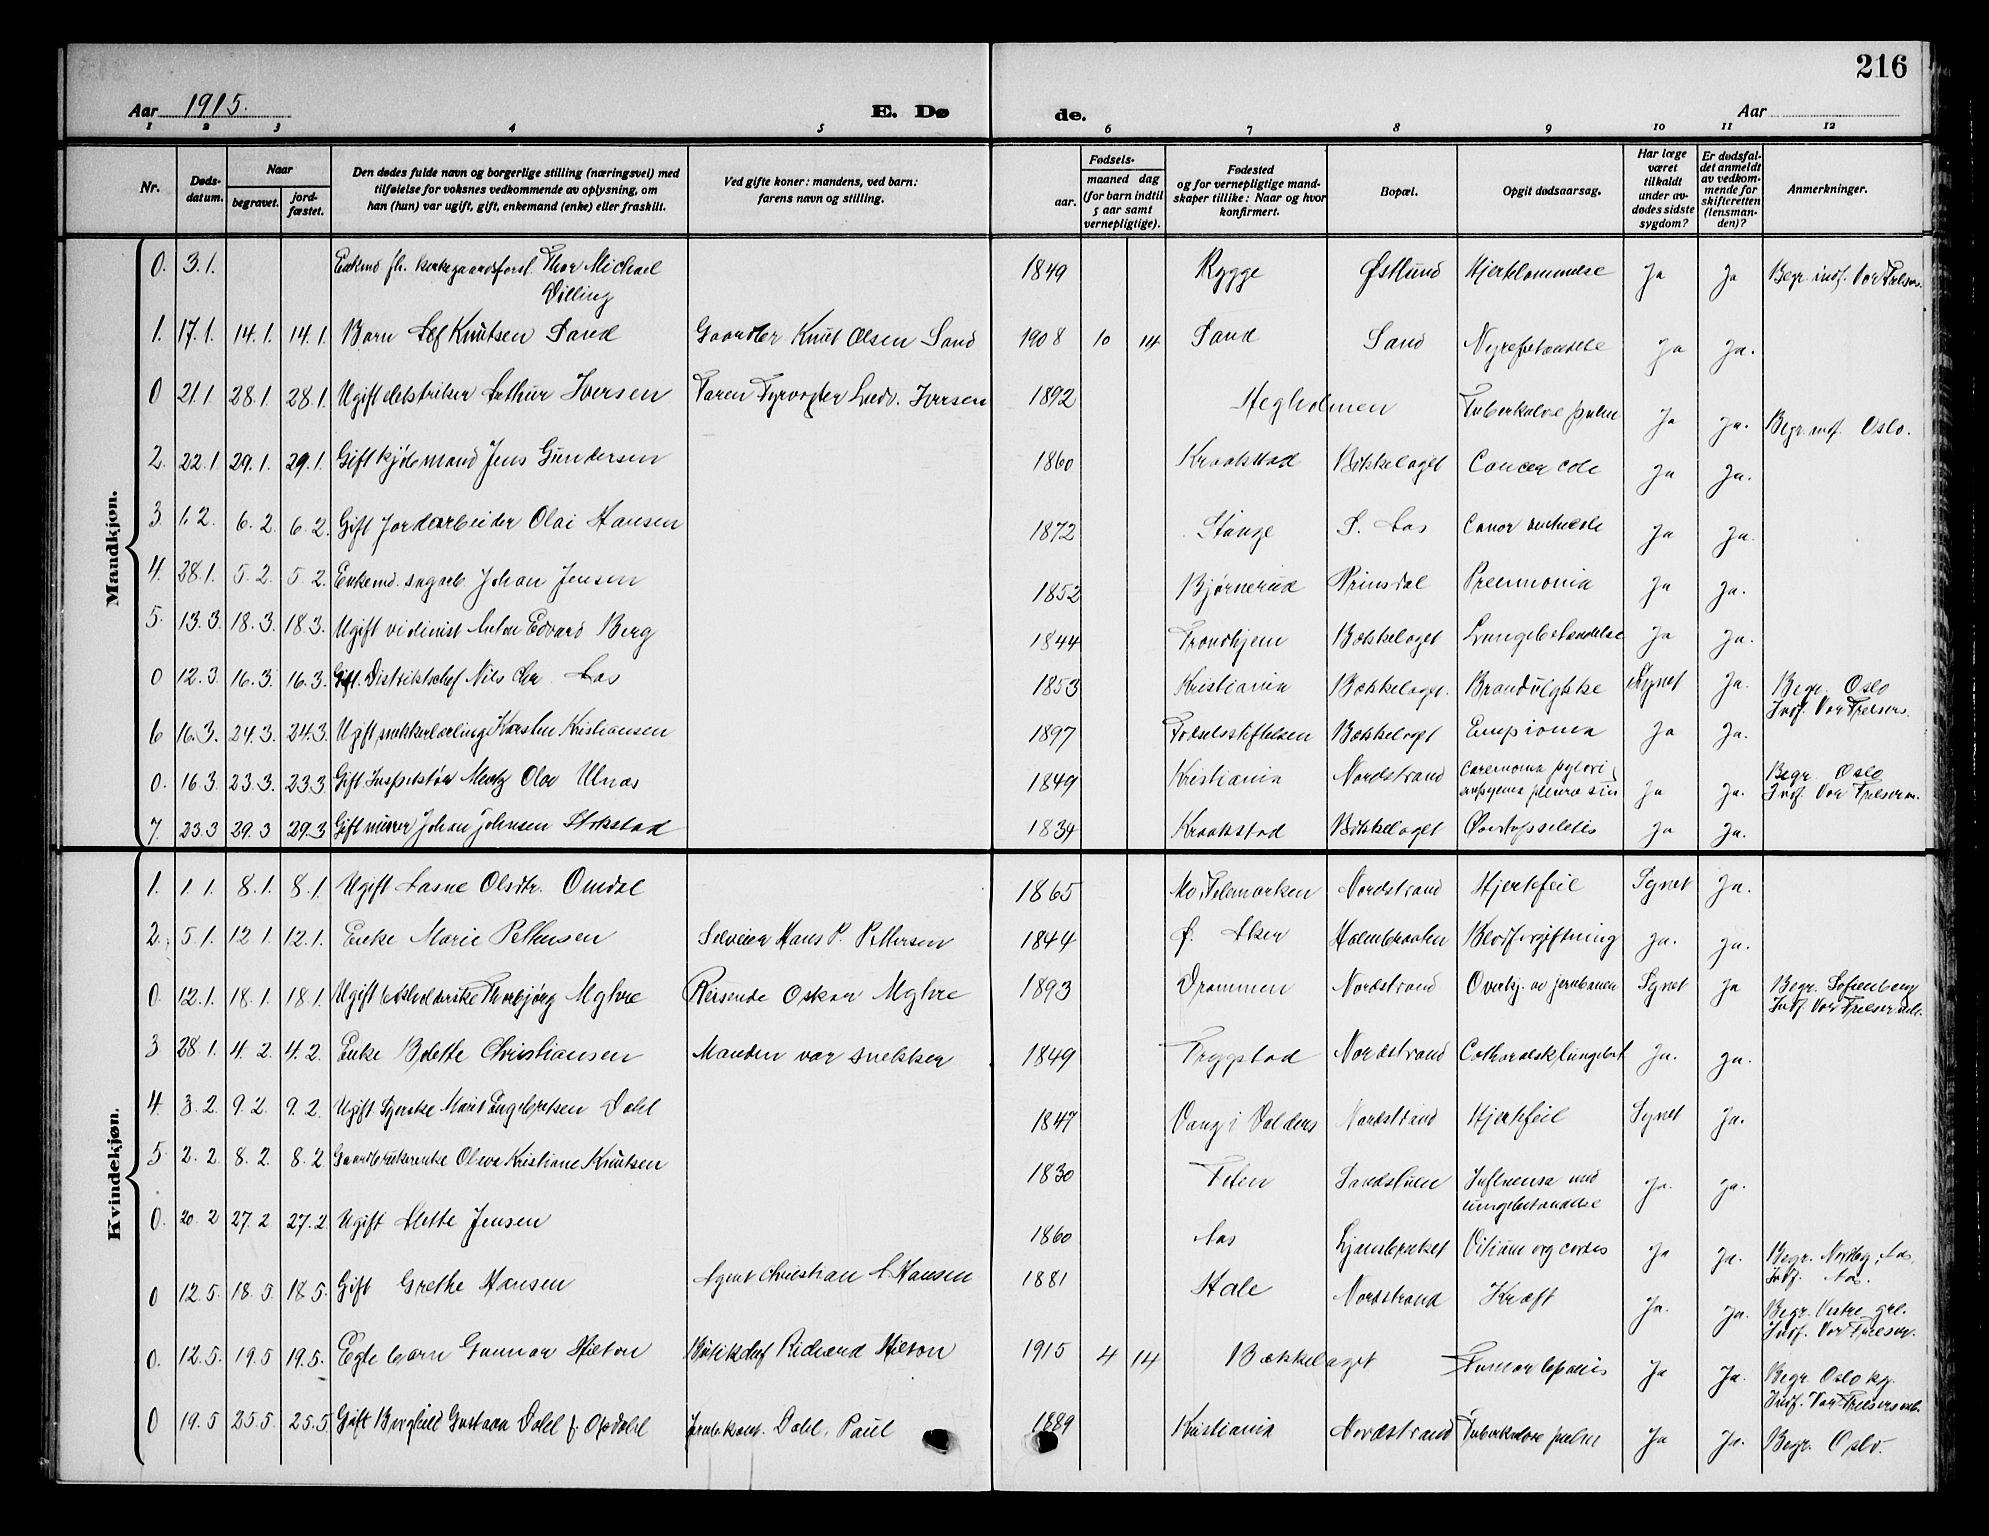 216
Aar 1915.
E. Dø
de.
Aar
1 2 3 4 5 6 7 8 9 10 11 12
Nr.
Døds-
datum.
Naar
begravet.
jord-
fæstet.
Den dødes fulde navn og borgerlige stilling (næringsvei) med
tilføielse for voksnes vedkommende av oplysning, om
han (hun) var ugift, gift, enkemand (enke) eller fraskilt.
Ved gifte koner: mandens, ved barn:
farens navn og stilling.
Fødsels-
aar.
maaned dag
(for barn indtil
5 aar samt
vernepligtige).
Fødested
og for vernepligtige mand-
skaper tillike: Naar og hvor
konfirmert.
Bopæl.
Opgit dødsaarsag.
Har læge
været
tilkaldt
under av-
dødes sidste
sygdom?
Er dødsfal-
det anmeldt
av vedkom-
mende for
skifteretten
(lensman-
den)?
Anmerkninger.
Mandkjøn.
0. 3.1. Enkmd fh. Kirkegaardsforst. Thor Michael 1849 Rygge Østlund Hjertelammelse Ja Ja Begr. indf. Vor Frelsers.
Dilling
1. 17.1. 14.1. 14.1. Barn Leif Knutsen Sand Gaardbr Knut Olsen Sand 1908 10 14 Sand Sand Ja Ja.
0 21.1 28.1. 28.1. Ugift Arthur Iversen Faren Fyrvogter Ludv. Iversen 1892 Hegholmen Tuberkulose pulm Ja Ja. Begr. indf. Oslo.
2. 22.1 29.1. 29.1. Gift kjøbmand Jens Gundersen 1860 Kraakstad Bækkelaget Cancer coli Ja Ja.
3. 1.2. 6.2. 6.2. Gift Jordarbeider Olai Hansen 1872 Stange S. Aas Ja Ja.
4. 28.1. 5.2. 5.2. Enkemd. sagarb Johan Jensen 1852 Bjørnerud Prinsdal Pneumonia Ja Ja.
5. 13.3. 18.3. 18.3. Ugift violinist Anton Edvard Berg 1844 Trondhjem Bækkelaget Lungebetændelse Ja Ja.
0 12.3 16.3. 16.3. Gift. Distriktschef Nils Chr. Aas 1853 Kristiania Bækkelaget. Brandulykke Synet Ja. Begr. Oslo
Indf. Vor Frelsers.
6 16.3. 24.3. 24.3. Ugift snekkerlærling Karsten Kristiansen 1897 Fødselsstiftelsen Bækkelaget Empiema Ja Ja.
0. 16.3 23.3. 23.3 Gift Inspektør Olav Ulnæs 1849 Kristiania Nordstrand Carcinoma pylori, Ja Ja. Begr. Oslo
empyema pleuræ sin Indf. Vor Frelserm.
7. 23.3 29.3 29.3 Gift murer Johan Johnsen Stokstad 1834 Kraakstad Bækkelaget Ja Ja.
Kvindekjøn.
1. 1.1. 8.1. 8.1. Ugift Aasne Olsdtr. Omdal 1865 Mo i Telemarken Nordstrand Hjertefeil Synet Ja.
2. 5.1. 12.1. 12.1. Enke Marie Pettersen Selveier Hans P. Pettersen 1844 Ø. Aker Holmbraaten Blodforgiftning Ja. Ja.
0. 12.1. 18.1. 18.1. Ugift Thorbjørg Myhre Reisende Oskar Myhre 1893 Drammen Nordstrand Overkj. av jernbanen Synet Ja Begr. Sofienberg
Indf. Vor Frelser
3 28.1. 4.2. 4.2. Enke Bolette Christiansen Manden var snekker 1849 Trygstad Nordstrand Catharalsk lungebet Ja. Ja.
4. 3.2. 9.2. 9.2. Ugift Syerske Marit Engebretsen Dahl 1847 Vang i Valders Nordstrand Hjertefeil Synet Ja.
5. 2.2 8.2. 8.2. Gaardbrukerenke Oleva Kristiane Knutsen 1830 Feten Sandstuen Influensa med Ja. Ja.
lungebetændelse
0. 20.2 27.2 27.2 Ugift Alette Jensen 1860 Aas Ljansbruket Vitium org cordis Ja Ja. Begr. Nordby, Aas,
Indf. Aas.
0 12.5. 18.5. 18.5. Gift Grethe Hansen Agent Christian A Hansen 1881 Hole Nordstrand Kræft Ja. Ja. Begr. Vestre grl.
Indf. Vor Frelser.
0. 12.5. 19.5 19.5. Egte barn Gunnar Hieton Butikchef Richard Hieton 1915 4 14 Bækkelaget Ja Ja. Begr. Oslo kg.
Indf. Vor Frelsers
0 19.5 25.5. 25.5. Gift Borghild Gustava Dahl f. Opdahl Dahl, Paul 1889 Kristiania Nordstrand Tuberkulose pulm Ja Ja. Begr. Oslo.